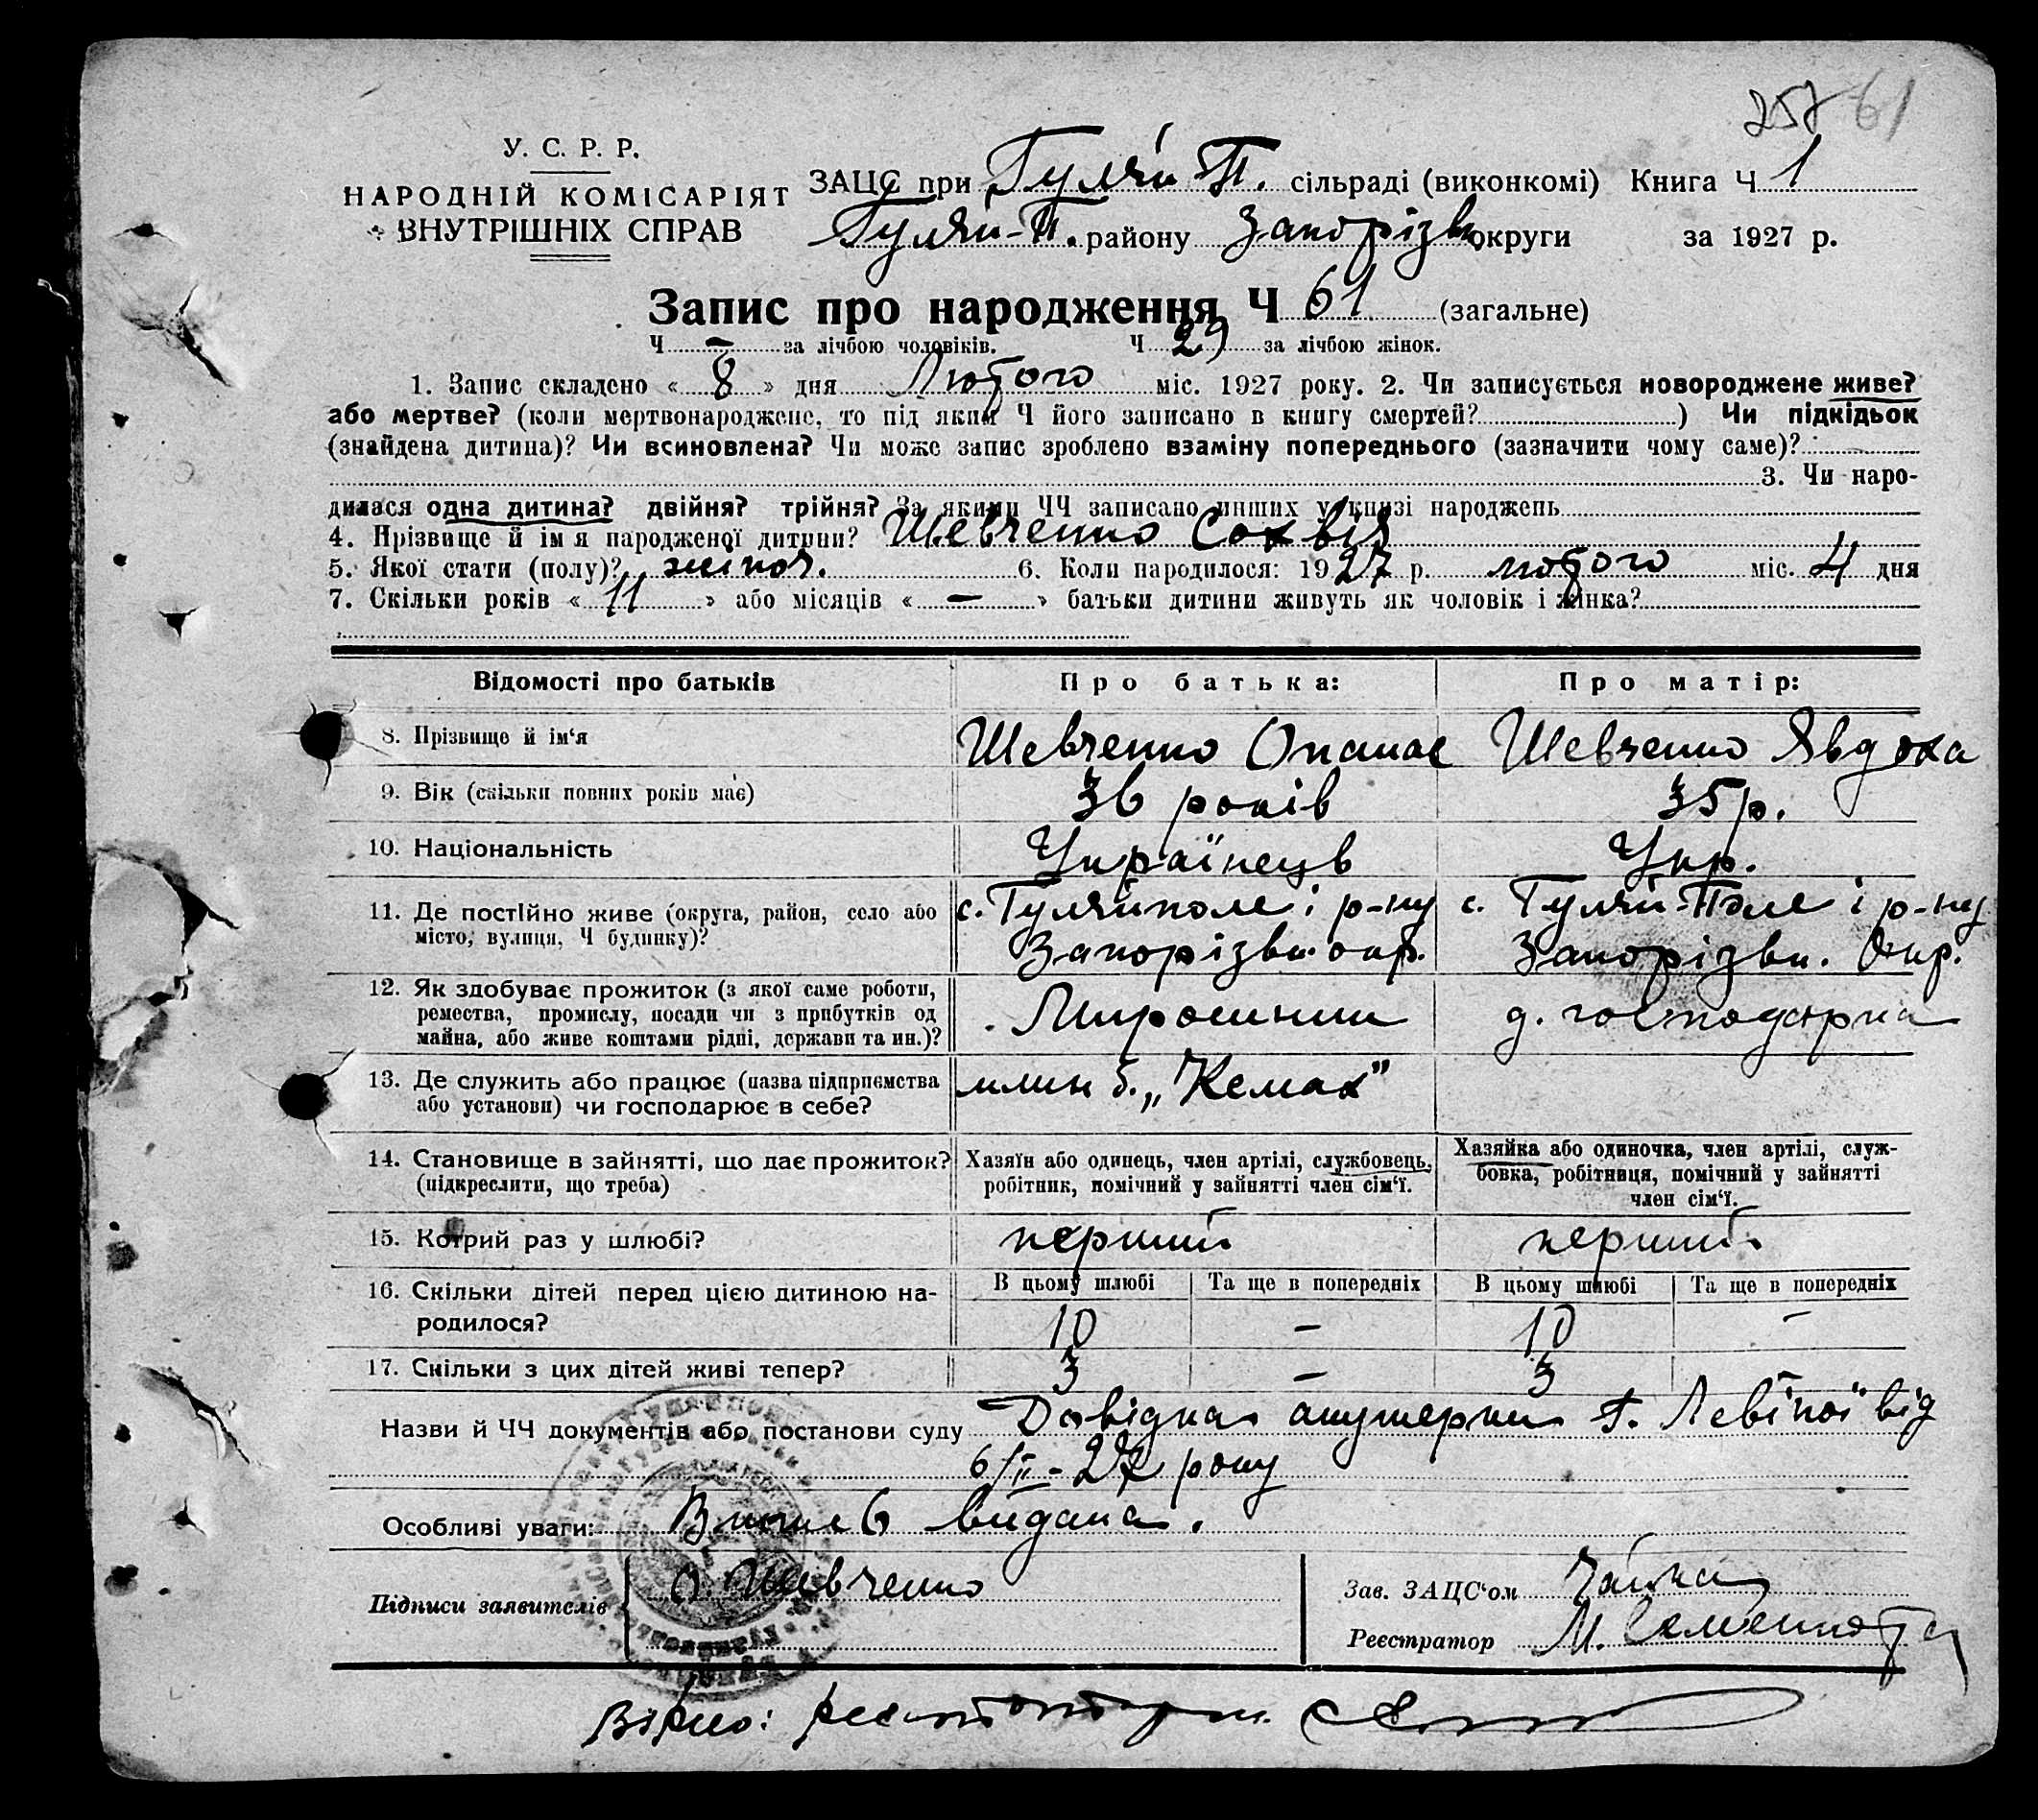 257 61
У. С. Р. Р.
НАРОДНІЙ КОМІСАРІЯТ
ВНУТРІШНІХ СПРАВ
ЗАЦС при Гуляй П. сільраді (виконкомі) Книга Ч 1
Гуляй-П. району Запорізьк округи за 1927 р.
Запис про народження Ч 61 (загальне)
Ч – за лічбою чоловіків. Ч 29 за лічбою жінок.
1. Запис складено « 8 » дня Лютого міс. 1927 року. 2. Чи записується новороджене живе?
або мертве? (коли мертвонароджене, то під яким Ч його записано в книгу смертей? ) Чи підкідьок
(знайдена дитина)? Чи всиновлена? Чи може запис зроблено взаміну попереднього (зазначити чому саме)?
3. Чи наро-
дилася одна дитина? двійня? трійня? За якими ЧЧ записано инших у книзі народжень
4. Прізвище й ім я народженої дитини? Шевченко Сохвія
5. Якої стати (полу)? жіноч. 6. Коли народилося: 1927 р. лютого міс. 4 дня
7. Скільки років « 11 » або місяців « – » батьки дитини живуть як чоловік і жінка?
Відомості про батьків Про батька: Про матір:
8. Прізвище й ім‘я Шевченко Опанас Шевченко Явдоха
9. Вік (скільки повних років має) 36 років 35 р.
10. Національність Українець Укр.
11. Де постійно живе (округа, район, село або місто, вулиця, Ч будинку)?
с. Гуляйполе і р-ну
Запорізьк. окр.
с. Гуляй-Поле і р-ну
Запорізьк. Окр.
12. Як здобуває прожиток (з якої саме роботи,
ремества, промислу, посади чи з прибутків од
майна, або живе коштами рідні, держави та ин.)?
Мирошник
д. господарка
13. Де служить або працює (назва підприємства
або установи) чи господарює в себе?
млин б. „Кемах”
14. Становище в зайнятті, що дає прожиток?
(підкреслити, що треба)
Хазяїн або одинець, член артілі, службовець,
робітник, помічний у зайнятті член сім‘ї.
Хазяйка або одиночка, член артілі, служ-
бовка, робітниця, помічний у зайнятті
член сім‘ї.
15. Котрий раз у шлюбі? перший перший
16. Скільки дітей перед цією дитиною на-
родилося?
В цьому шлюбі Та ще в попередніх В цьому шлюбі Та ще в попередніх
10 – 10 –
17. Скільки з цих дітей живі тепер? 3 – 3
Назви й ЧЧ документів або постанови суду Довідка акушерки Г. Левіної від
6/II-27 року
Особливі уваги: видана.
Підписи заявителів О. Шевченко
Зав. ЗАЦС‘ом Чайка
Реєстратор М.
Вірно: